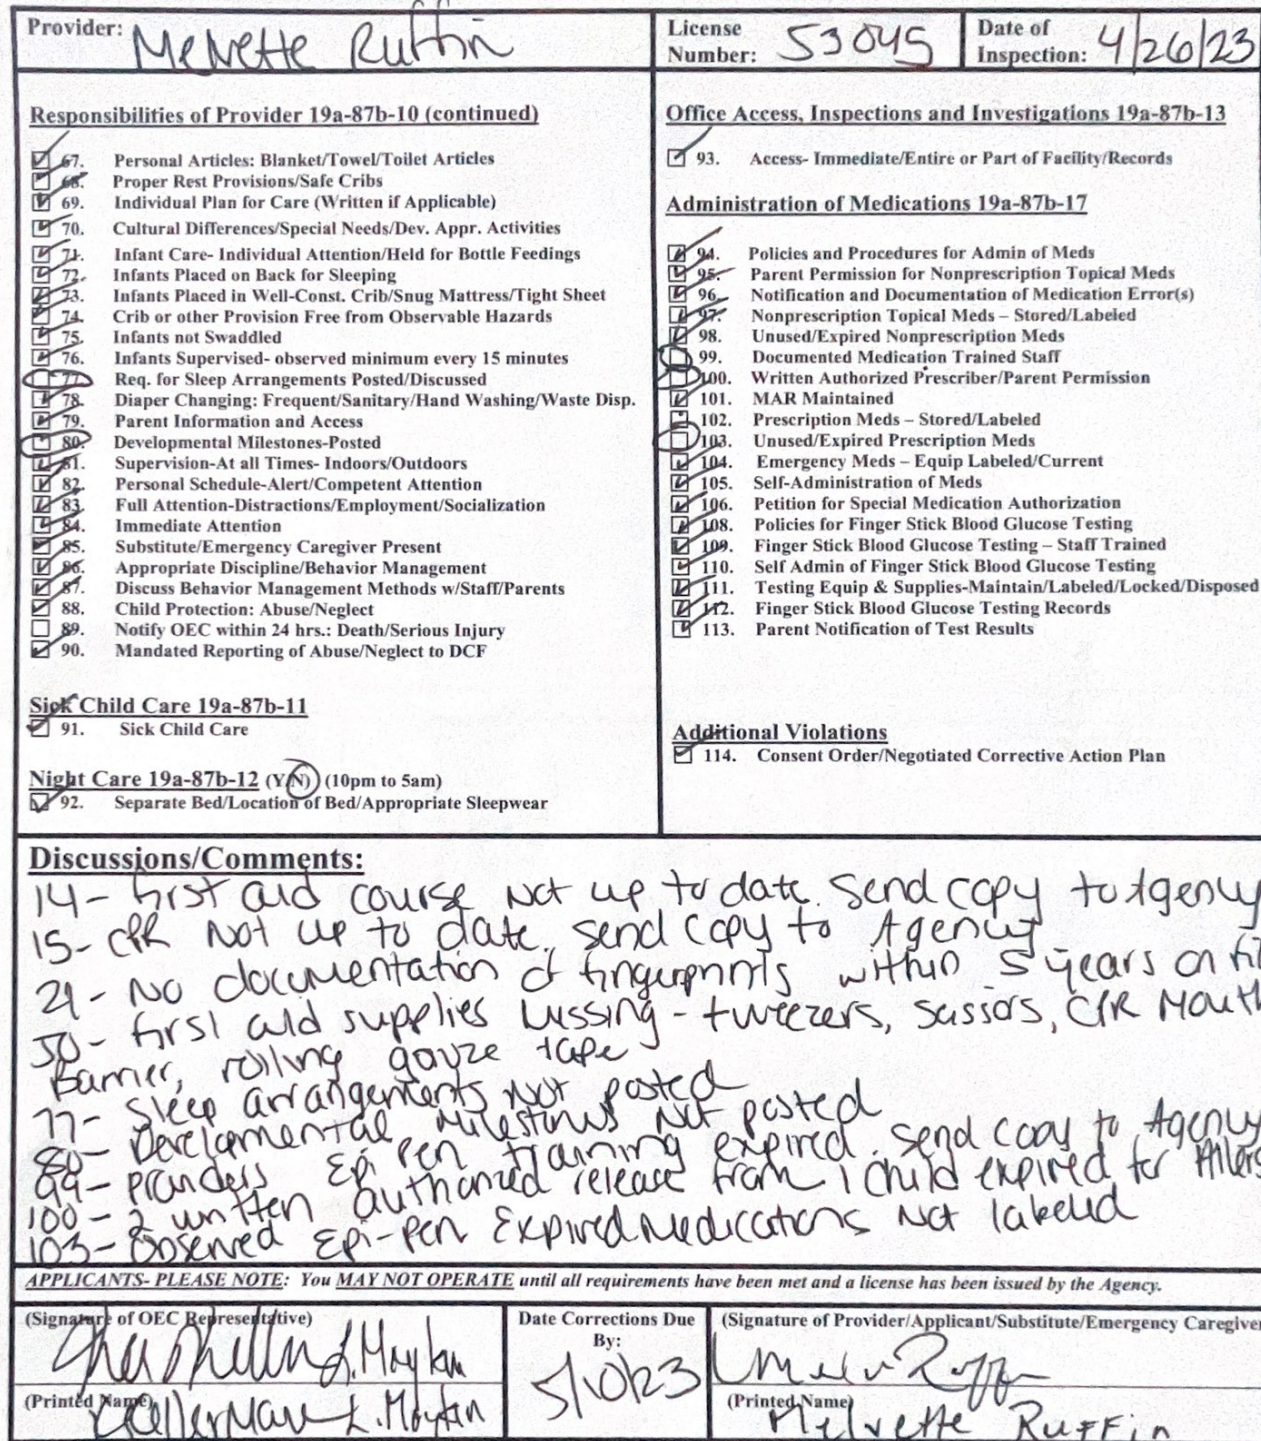 Provider: Melvette Ruffin
License Number: 53045
Date of Inspection: 4/26/23
Responsibilities of Provider 19a-87b-10 (continued)
67. Personal Articles: Blanket/Towel/Toilet Articles
68. Proper Rest Provisions/Safe Cribs
69. Individual Plan for Care (Written if Applicable)
70. Cultural Differences/Special Needs/Dev. Appr. Activities
71. Infant Care- Individual Attention/Held for Bottle Feedings
72. Infants Placed on Back for Sleeping
73. Infants Placed in Well-Const. Crib/Snug Mattress/Tight Sheet
74. Crib or other Provision Free from Observable Hazards
75. Infants not Swaddled
76. Infants Supervised- observed minimum every 15 minutes
77. Req. for Sleep Arrangements Posted/Discussed
78. Diaper Changing: Frequent/Sanitary/Hand Washing/Waste Disp.
79. Parent Information and Access
80. Developmental Milestones-Posted
81. Supervision-At all Times- Indoors/Outdoors
82. Personal Schedule-Alert/Competent Attention
83. Full Attention-Distractions/Employment/Socialization
84. Immediate Attention
85. Substitute/Emergency Caregiver Present
86. Appropriate Discipline/Behavior Management
87. Discuss Behavior Management Methods w/Staff/Parents
88. Child Protection: Abuse/Neglect
89. Notify OEC within 24 hrs.: Death/Serious Injury
90. Mandated Reporting of Abuse/Neglect to DCF
Sick Child Care 19a-87b-11
91. Sick Child Care
Night Care 19a-87b-12 (Y/N) (10pm to 5am)
92. Separate Bed/Location of Bed/Appropriate Sleepwear
Office Access, Inspections and Investigations 19a-87b-13
93. Access- Immediate/Entire or Part of Facility/Records
Administration of Medications 19a-87b-17
94. Policies and Procedures for Admin of Meds
95. Parent Permission for Nonprescription Topical Meds
96. Notification and Documentation of Medication Error(s)
97. Nonprescription Topical Meds – Stored/Labeled
98. Unused/Expired Nonprescription Meds
99. Documented Medication Trained Staff
100. Written Authorized Prescriber/Parent Permission
101. MAR Maintained
102. Prescription Meds – Stored/Labeled
103. Unused/Expired Prescription Meds
104. Emergency Meds – Equip Labeled/Current
105. Self-Administration of Meds
106. Petition for Special Medication Authorization
108. Policies for Finger Stick Blood Glucose Testing
109. Finger Stick Blood Glucose Testing – Staff Trained
110. Self Admin of Finger Stick Blood Glucose Testing
111. Testing Equip & Supplies-Maintain/Labeled/Locked/Disposed
112. Finger Stick Blood Glucose Testing Records
113. Parent Notification of Test Results
Additional Violations
114. Consent Order/Negotiated Corrective Action Plan
Discussions/Comments:
14- first aid course Not up to date. Send copy to Agency
15- CPR Not up to date. send copy to Agency
21- No documentation of fingerprints within 5 years on
50- first aid supplies Missing - tweezers, sassors, CPR Mouth
Barrier, rolling gauze tape
77- Sleep arrangements Not posted
80- Developmental Milestones Not posted
99- providers Epi pen training expired. send copy to Agency
100- 2 written authorized release from 1 child expired for
103- Observed Epi-pen Expired Medications Not labeled
APPLICANTS- PLEASE NOTE: You MAY NOT OPERATE until all requirements have been met and a license has been issued by the Agency.
(Signature of OEC Representative)
(Printed Name) L. Moytan
Date Corrections Due By:
5/10/23
(Signature of Provider/Applicant/Substitute/Emergency Caregiver
(Printed Name) Melvette Ruffin